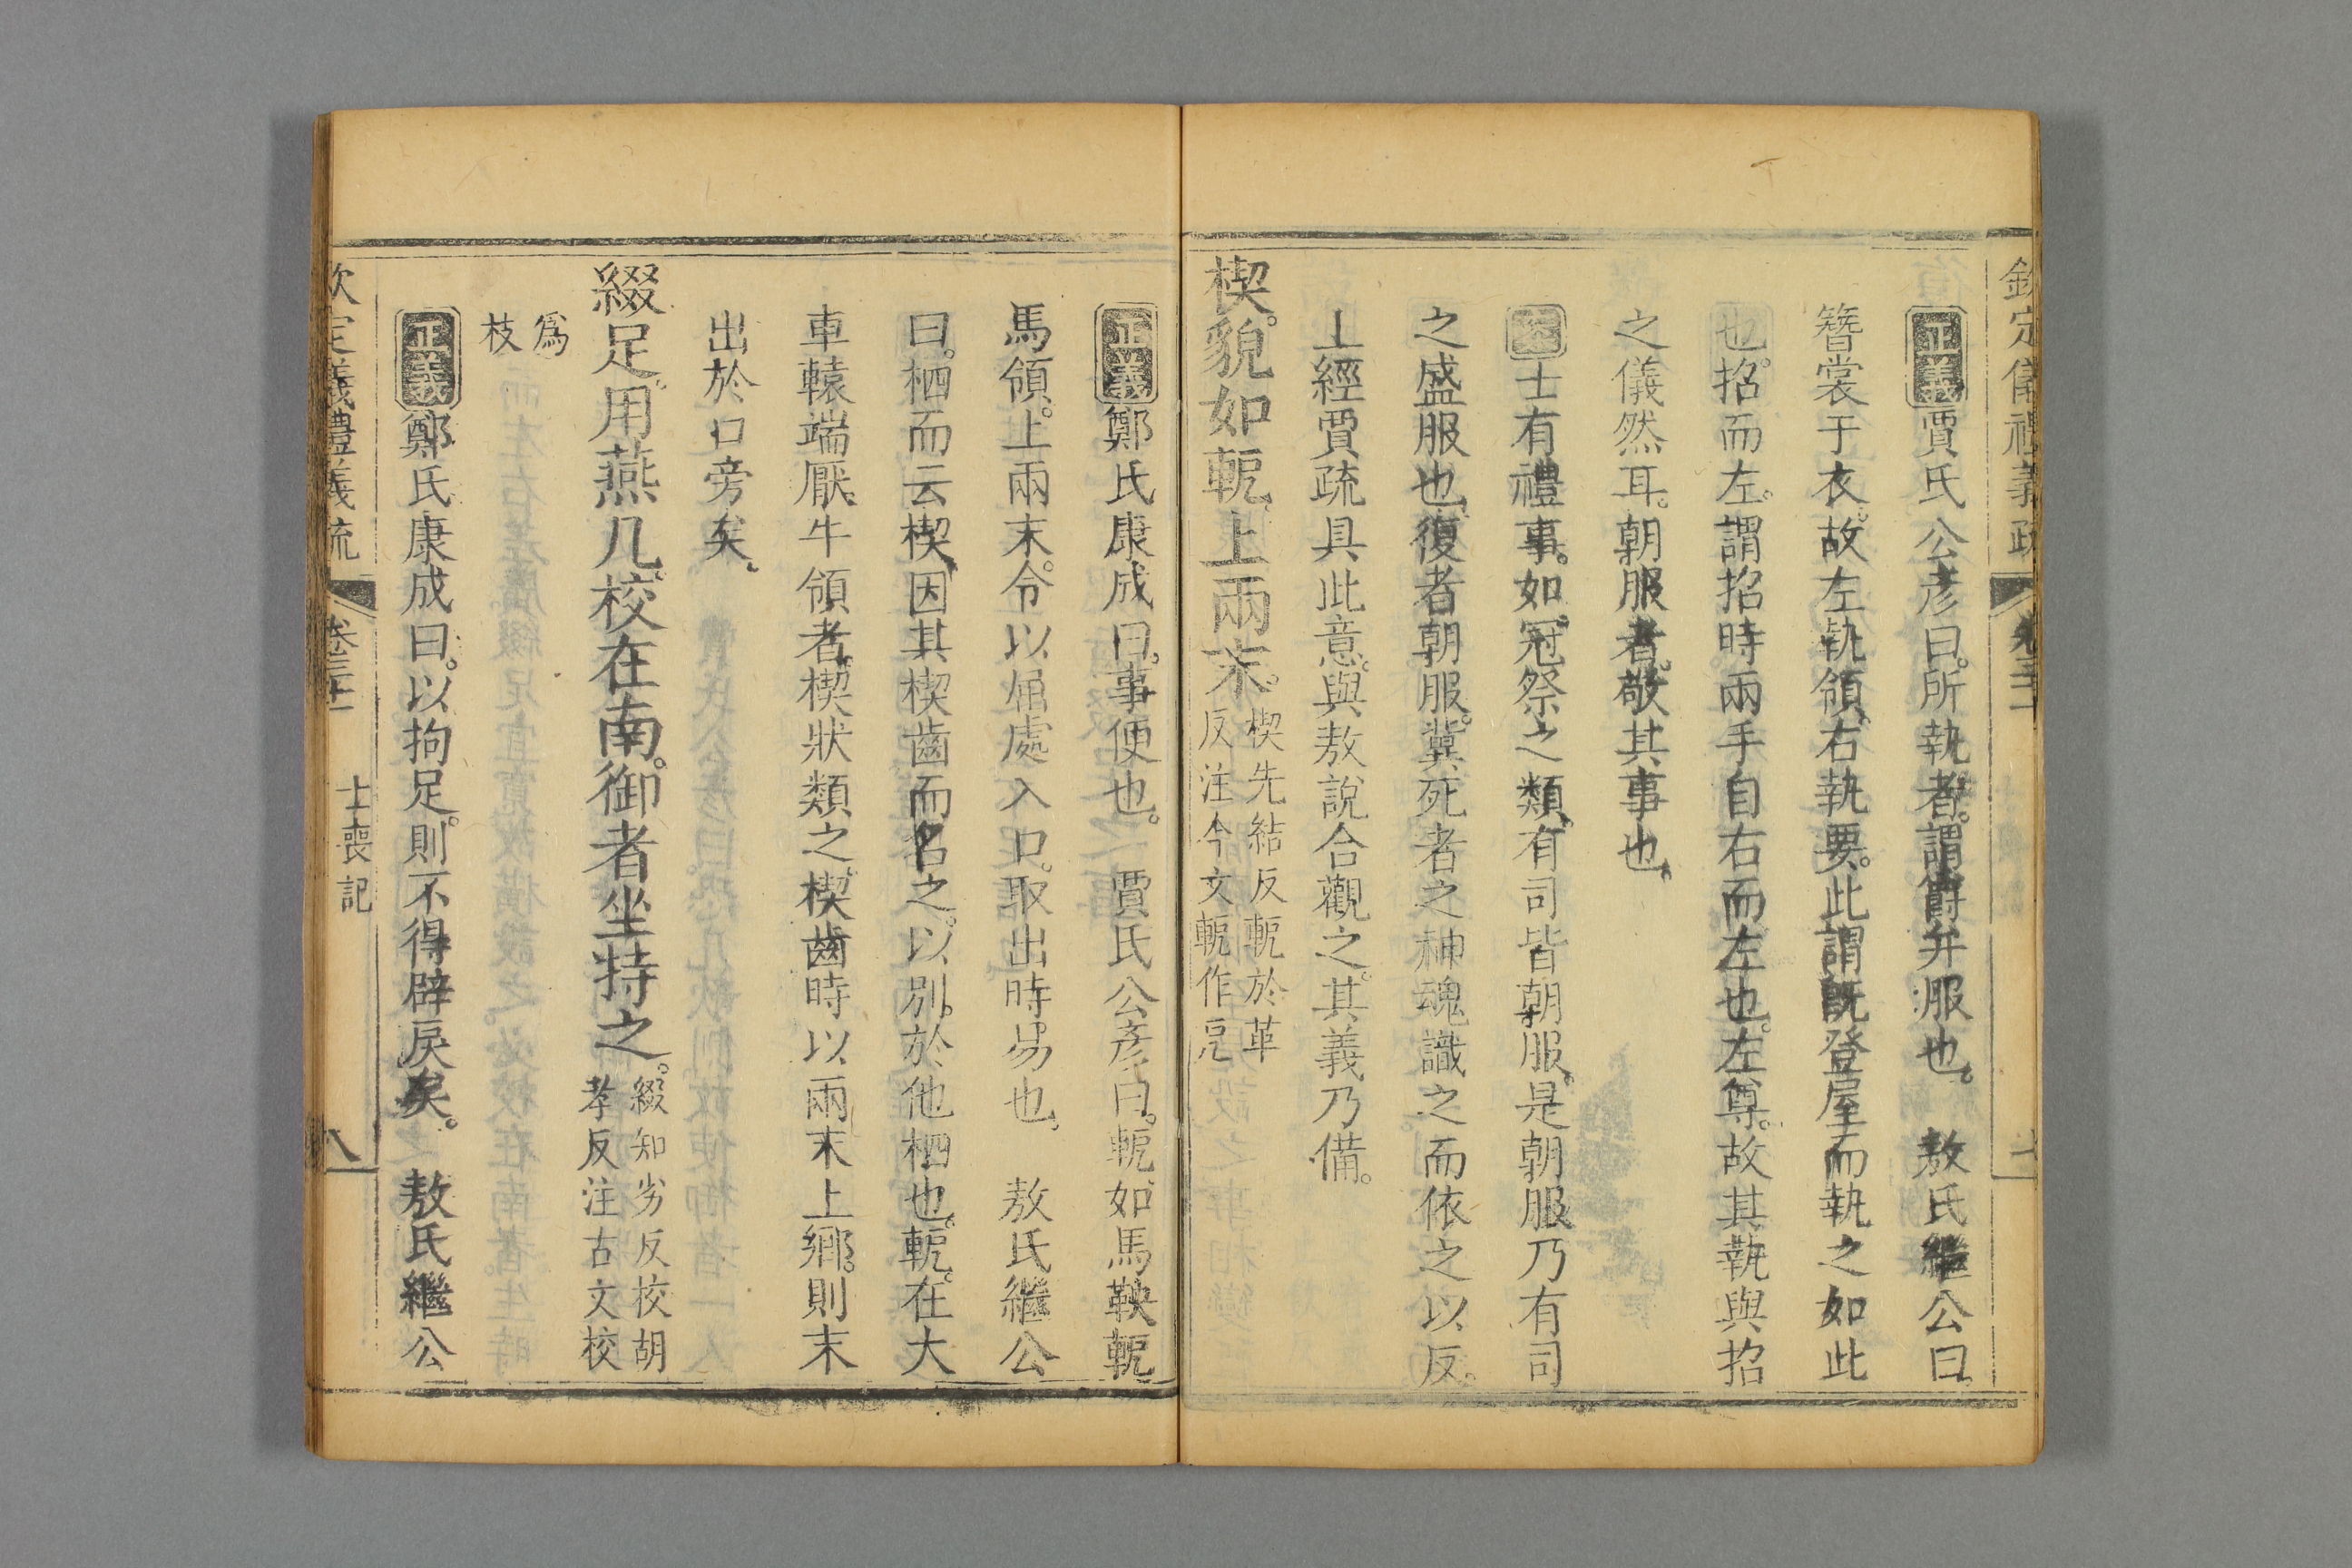 欽定儀禮義疏
正義賈氏公彥曰所執者謂爵弁服也 敖氏繼公曰
簪裳于衣故左執領右執要此謂旣登屋而執之如此
也招而左謂招時兩手自右而左也左尊故其執與招
之儀然耳朝服者敬其事也
案士有禮事如冠祭之類有司皆朝服是朝服乃有司
之盛服也復者朝服冀死者之神魂識之而依之以反
上經賈疏具此意與敖說合觀之其義乃備
楔貌如軛上兩末楔先結反軛於革
反注今文軛作厄
正義鄭氏康成曰事便也 賈氏公彥曰軛如馬鞅軛
馬領上兩末令以屈處入口取出時易也 敖氏繼公
曰柶而云楔因其楔齒而名之以別於他柶也軛在大
車轅端厭牛領者楔狀類之楔齒時以兩末上鄉則末
出於口旁矣
綴足用燕几校在南御者坐持之綴知劣反校胡
孝反注古文校
爲
枝
正義鄭氏康成曰以拘足則不得辟戾矣 敖氏繼公
欽定儀禮義疏 卷三十一 士喪記 八